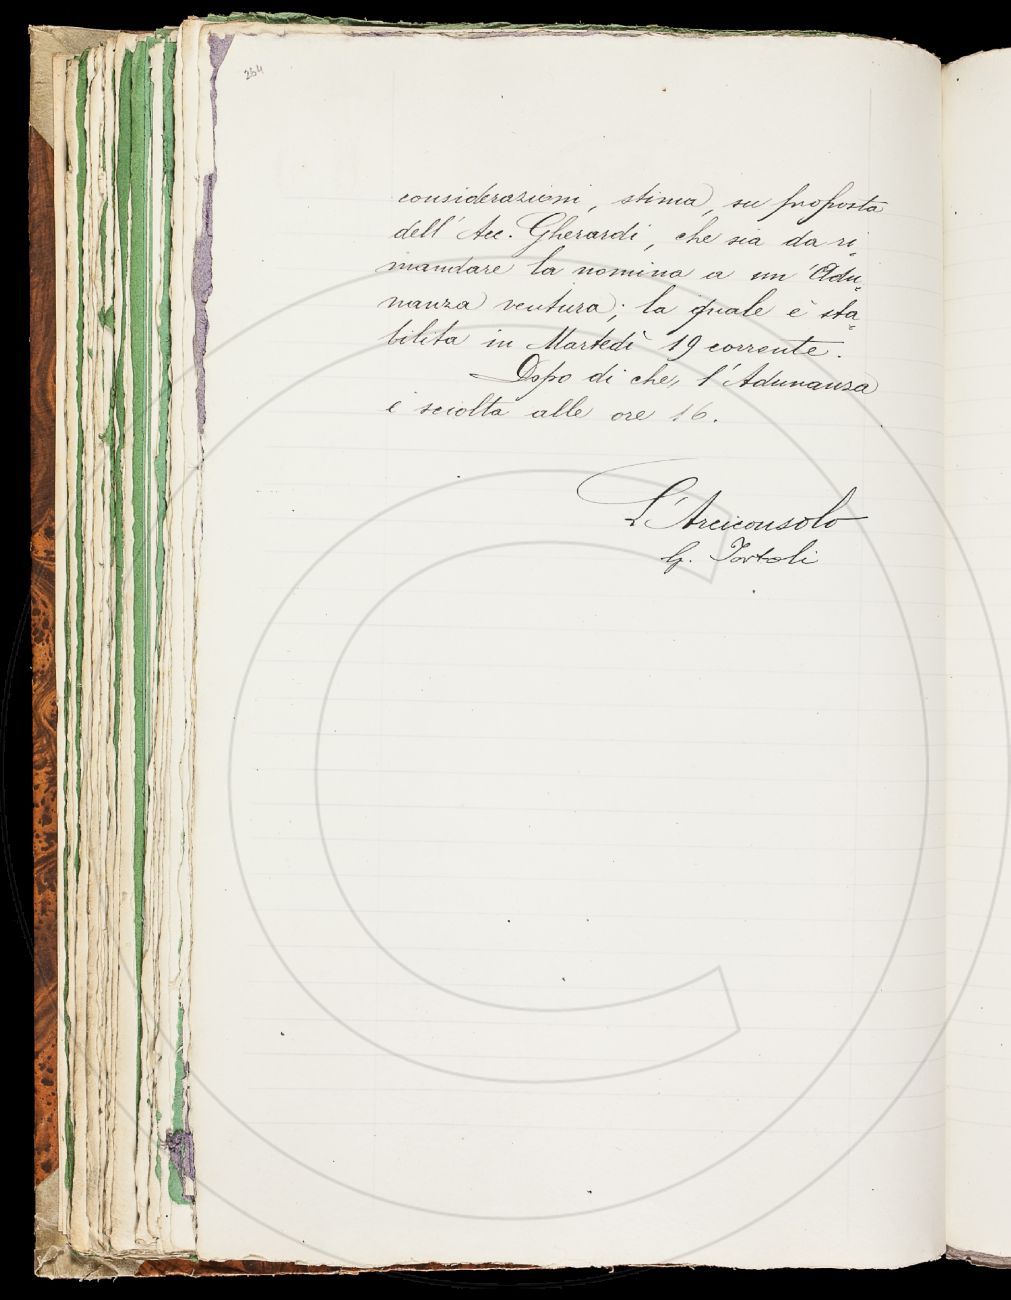 264
considerazioni, stima, su proposta
dell'Acc. Gherardi, che sia da ri-
mandare la nomina a un'Adu-
nanza ventura; la quale è sta-
bilita in Martedì 19 corrente.
Dopo di che, l'Adunanza
è sciolta alle ore 16.
L'Arciconsolo
G. Tortoli